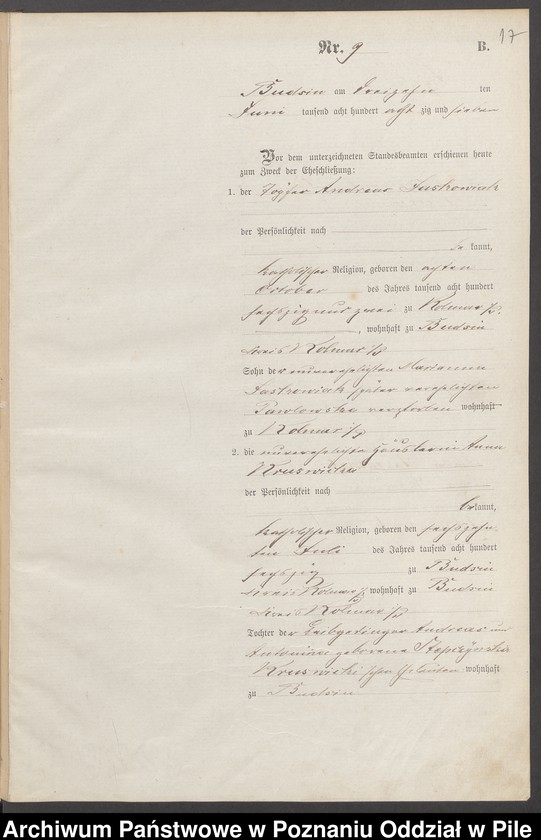 17
Nr. 9 B.
Budsin am dreizehn ten
Juni tausend acht hundert acht zig und sieben
Vor dem unterzeichneten Standesbeamten erschienen heute
zum Zweck der Eheschließung:
1. der Töpfer Andreas Jastrowiak
der Persönlichkeit nach
be kannt,
katholischer Religion, geboren den achten
October des Jahres tausend acht hundert
sechszig und zwei zu Kolmar i/P.
, wohnhaft zu Budsin
Kreis Kolmar i/P
Sohn der unverehelichten Marianna
Jastrowiak später verehelichten
Pawlowska verstorben wohnhaft
zu Kolmar i/P
2. die unverehelichte Häuslerin Anna
Kruswicka
der Persönlichkeit nach
bekannt,
katholischer Religion, geboren den sechszehn-
ten Juli des Jahres tausend acht hundert
sechszig zu Budsin
Kreis Kolmar i/P wohnhaft zu Budsin
Kreis Kolmar i/P
Tochter der Leibgedinger Andreas und
Antonina geborene
Kruswicki'schen Eheleuten wohnhaft
zu Budsin
Archiwum Państwowe w Poznaniu Oddział w Pile